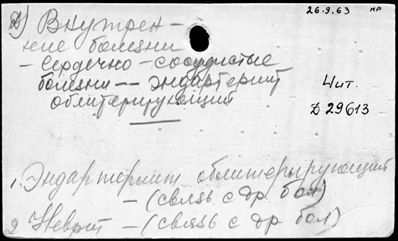 26.9.63 нр
а) Внутрен-
ние болезни
- сердечно-сосудистые
болезни -- эндартериит
облитерирующий
Чит.
Д 29613
1. Эндартериит облитерирующий
- (связь с др. бол)
2 Неврит - (связь с др бол)